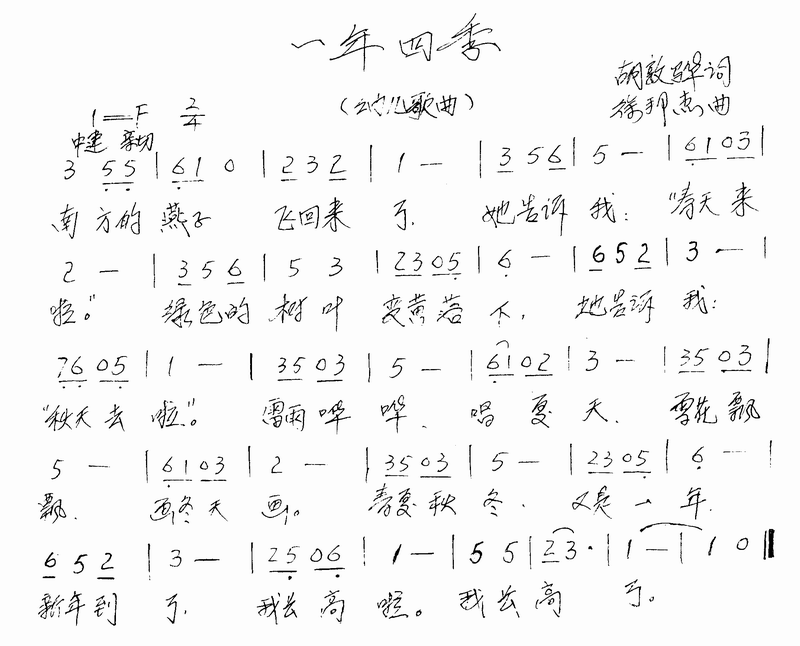 一年四季
(幼儿歌曲)
胡敦骅词
1=F 2/4
徐邦杰曲
中速 亲切
3 5 5 | 6 1 0 | 2 3 2 | 1 — | 3 5 6 | 5 — | 6 1 0 3 |
南方的燕子 飞回来了. 她告诉我: "春天来
2 — | 3 5 6 | 5 3 | 2 3 0 5 | 6 — | 6 5 2 | 3 — |
啦。" 绿色的树叶 变黄落下, 她告诉我:
7 6 0 5 | 1 — | 3 5 0 3 | 5 — | 6 1 0 2 | 3 — | 3 5 0 3 |
"秋天去啦"。 雷雨哗哗、唱夏天. 雪花飘
5 — | 6 1 0 3 | 2 — | 3 5 0 3 | 5 — | 2 3 0 5 | 6 — |
飘. 画冬天画。 春夏秋冬. 又是一年.
6 5 2 | 3 — | 2 5 0 6 | 1 — | 5 5 | 2 3 · | 1 — | 1 0 ‖
新年到了. 我长高啦。我长高了。